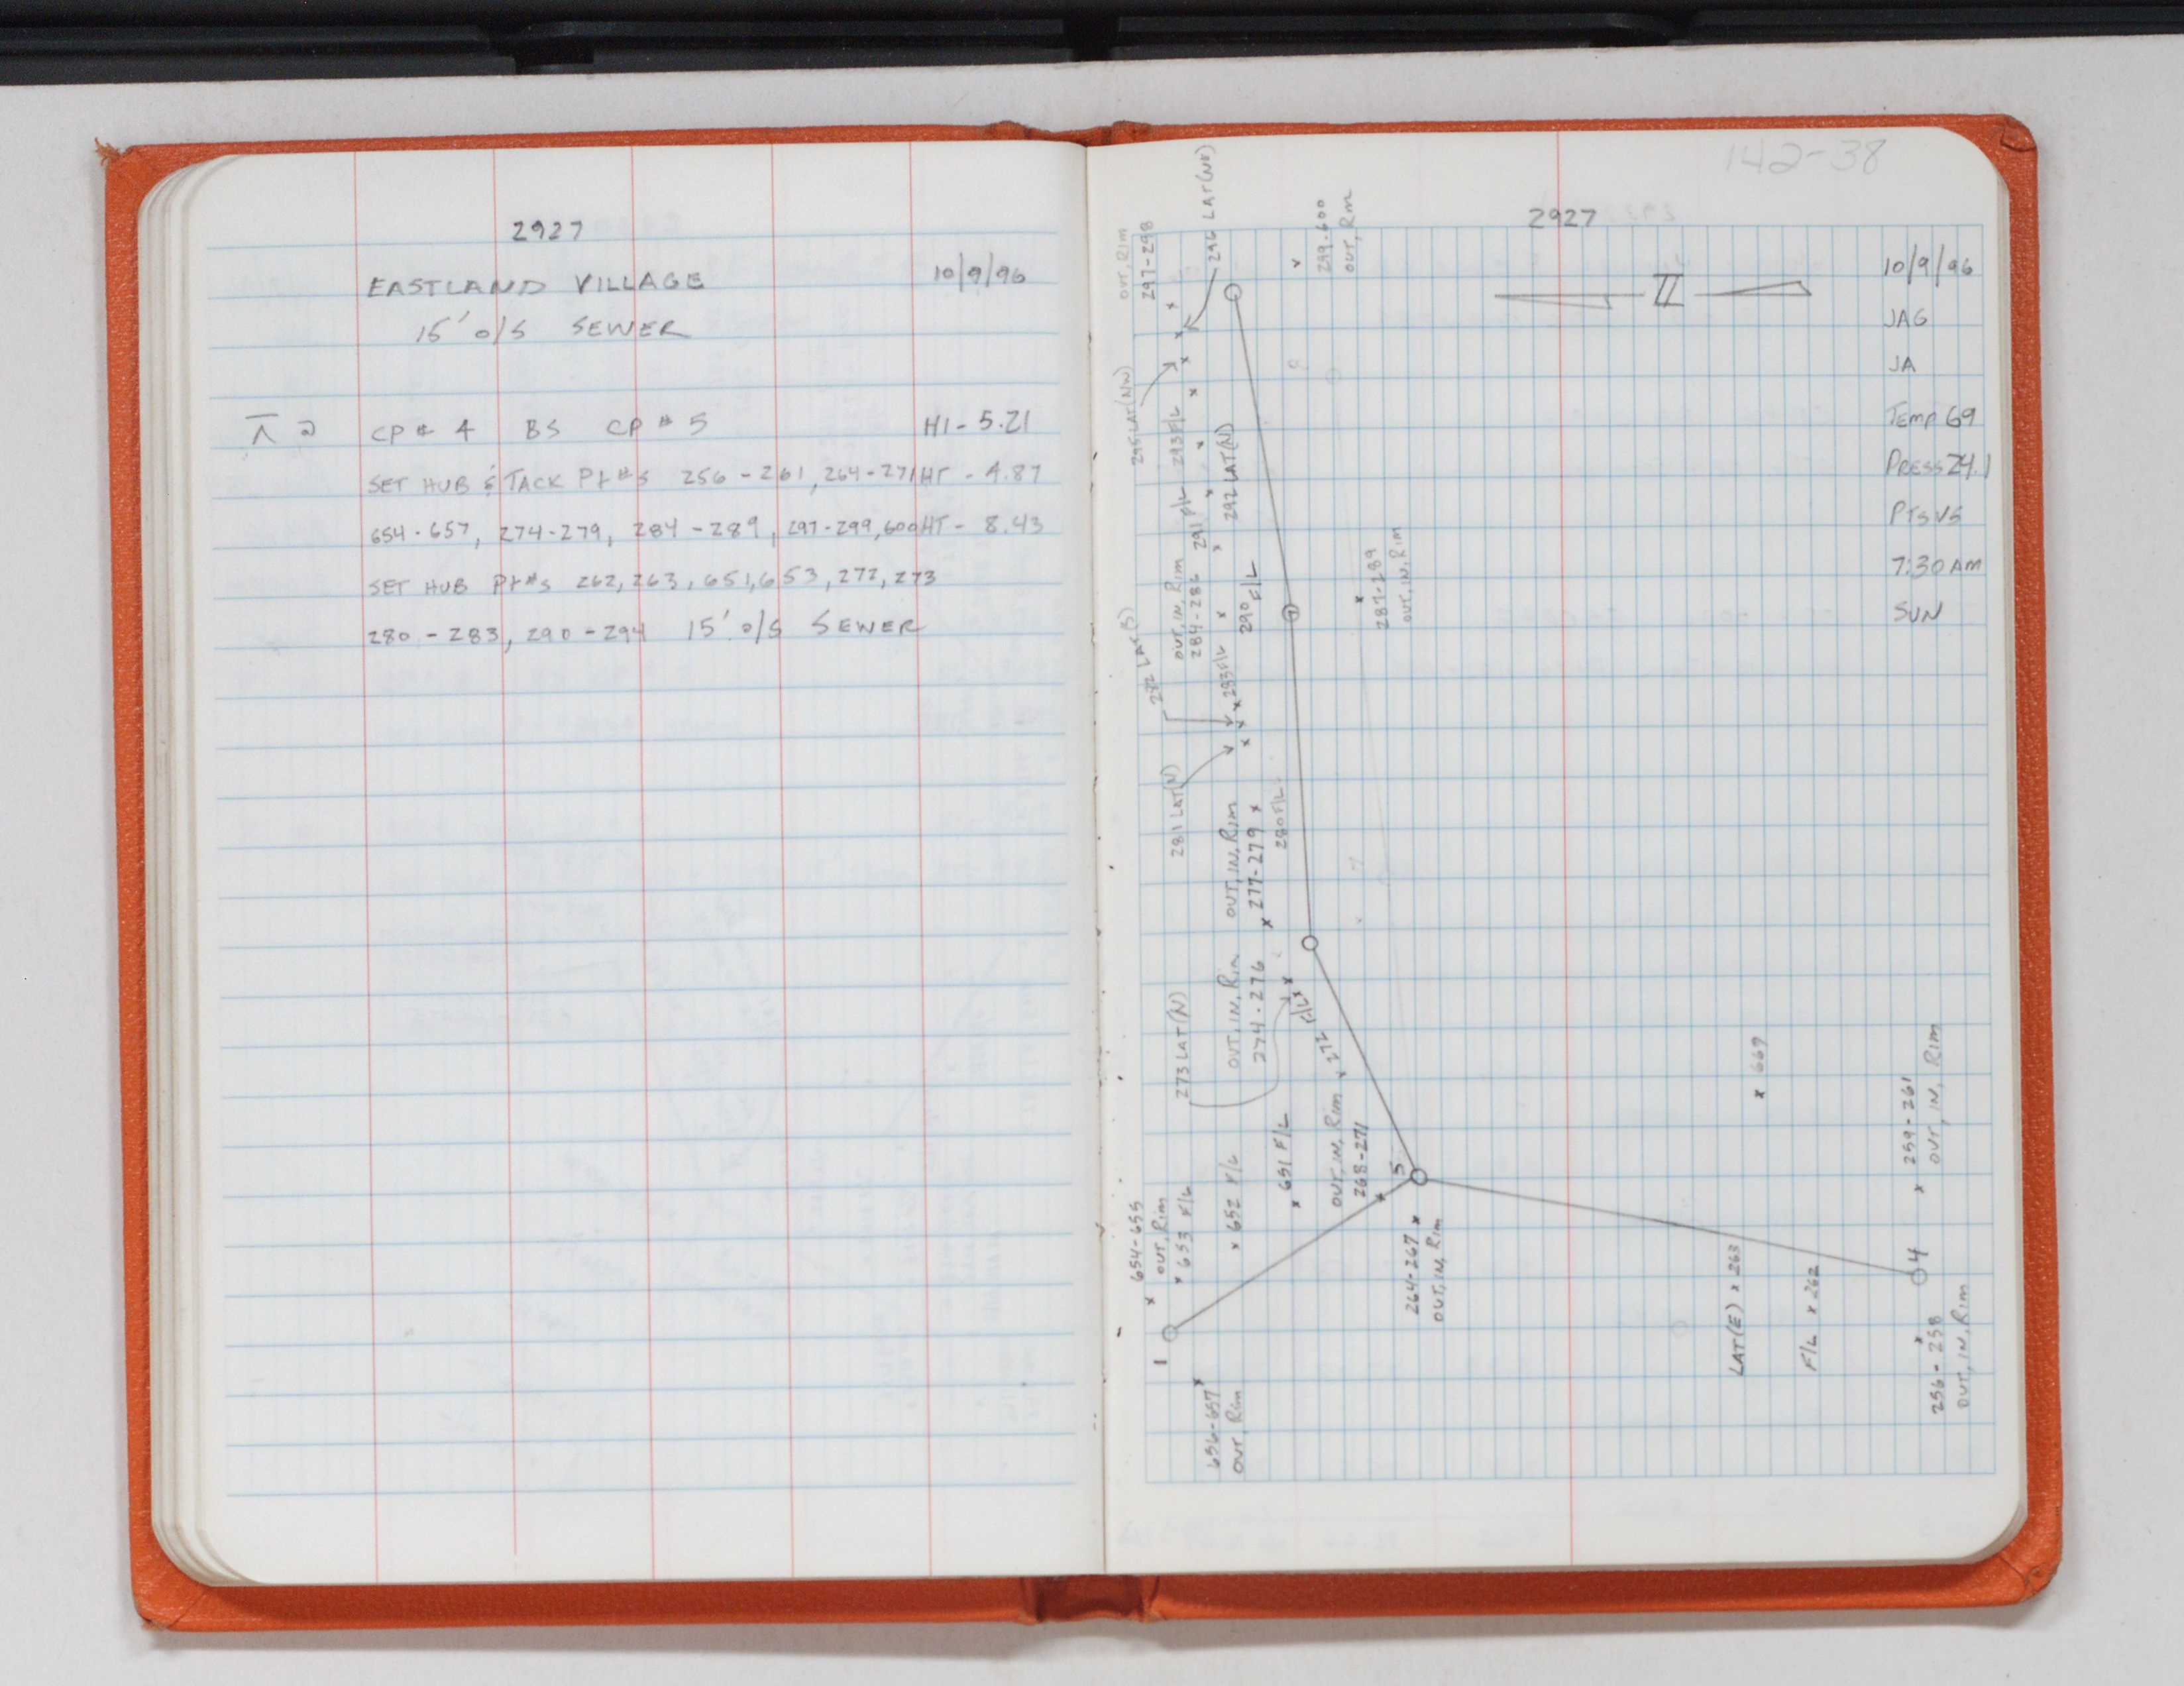 2927
EASTLAND VILLAGE 10/9/96
15' O/S SEWER
CP # 4 BS CP # 5 HI - 5.21
SET HUB & TACK Pt #S 256 - 261, 264-271 HT - 4.87
654-657, 274-279, 284-289, 297-299, 600 HT - 8.43
SET HUB Pt#s 262, 263, 651, 653, 272, 273
280 - 283, 290 - 294 15' O/S SEWER
142-38
2927
10/9/96
JAG
JA
Temp 69
PRESS 24.1
PTSV5
7:30 AM
SUN
OUT, RIM
297-298
296 LAT(NE)
299.600
OUT, Rim
295 LAT(NW)
293 F/L
292 LAT(N)
291 F/L
290 F/L
OUT, IN, Rim
284-286
287-289
OUT, IN, Rim
282 LAT(S)
283 F/L
281 LAT(N)
280 F/L
OUT, IN, Rim
277-279
OUT, IN, Rim
274-276
273 LAT(N)
272 F/L
651 F/L
OUT, IN, Rim
268-271
5
652 F/L
653 F/L
654-655
OUT, Rim
1
656-657
OUT, Rim
264-267
OUT, IN, Rim
669
259-261
OUT, IN, Rim
LAT(E) x 263
F/L x 262
4
256-258
OUT, IN, Rim